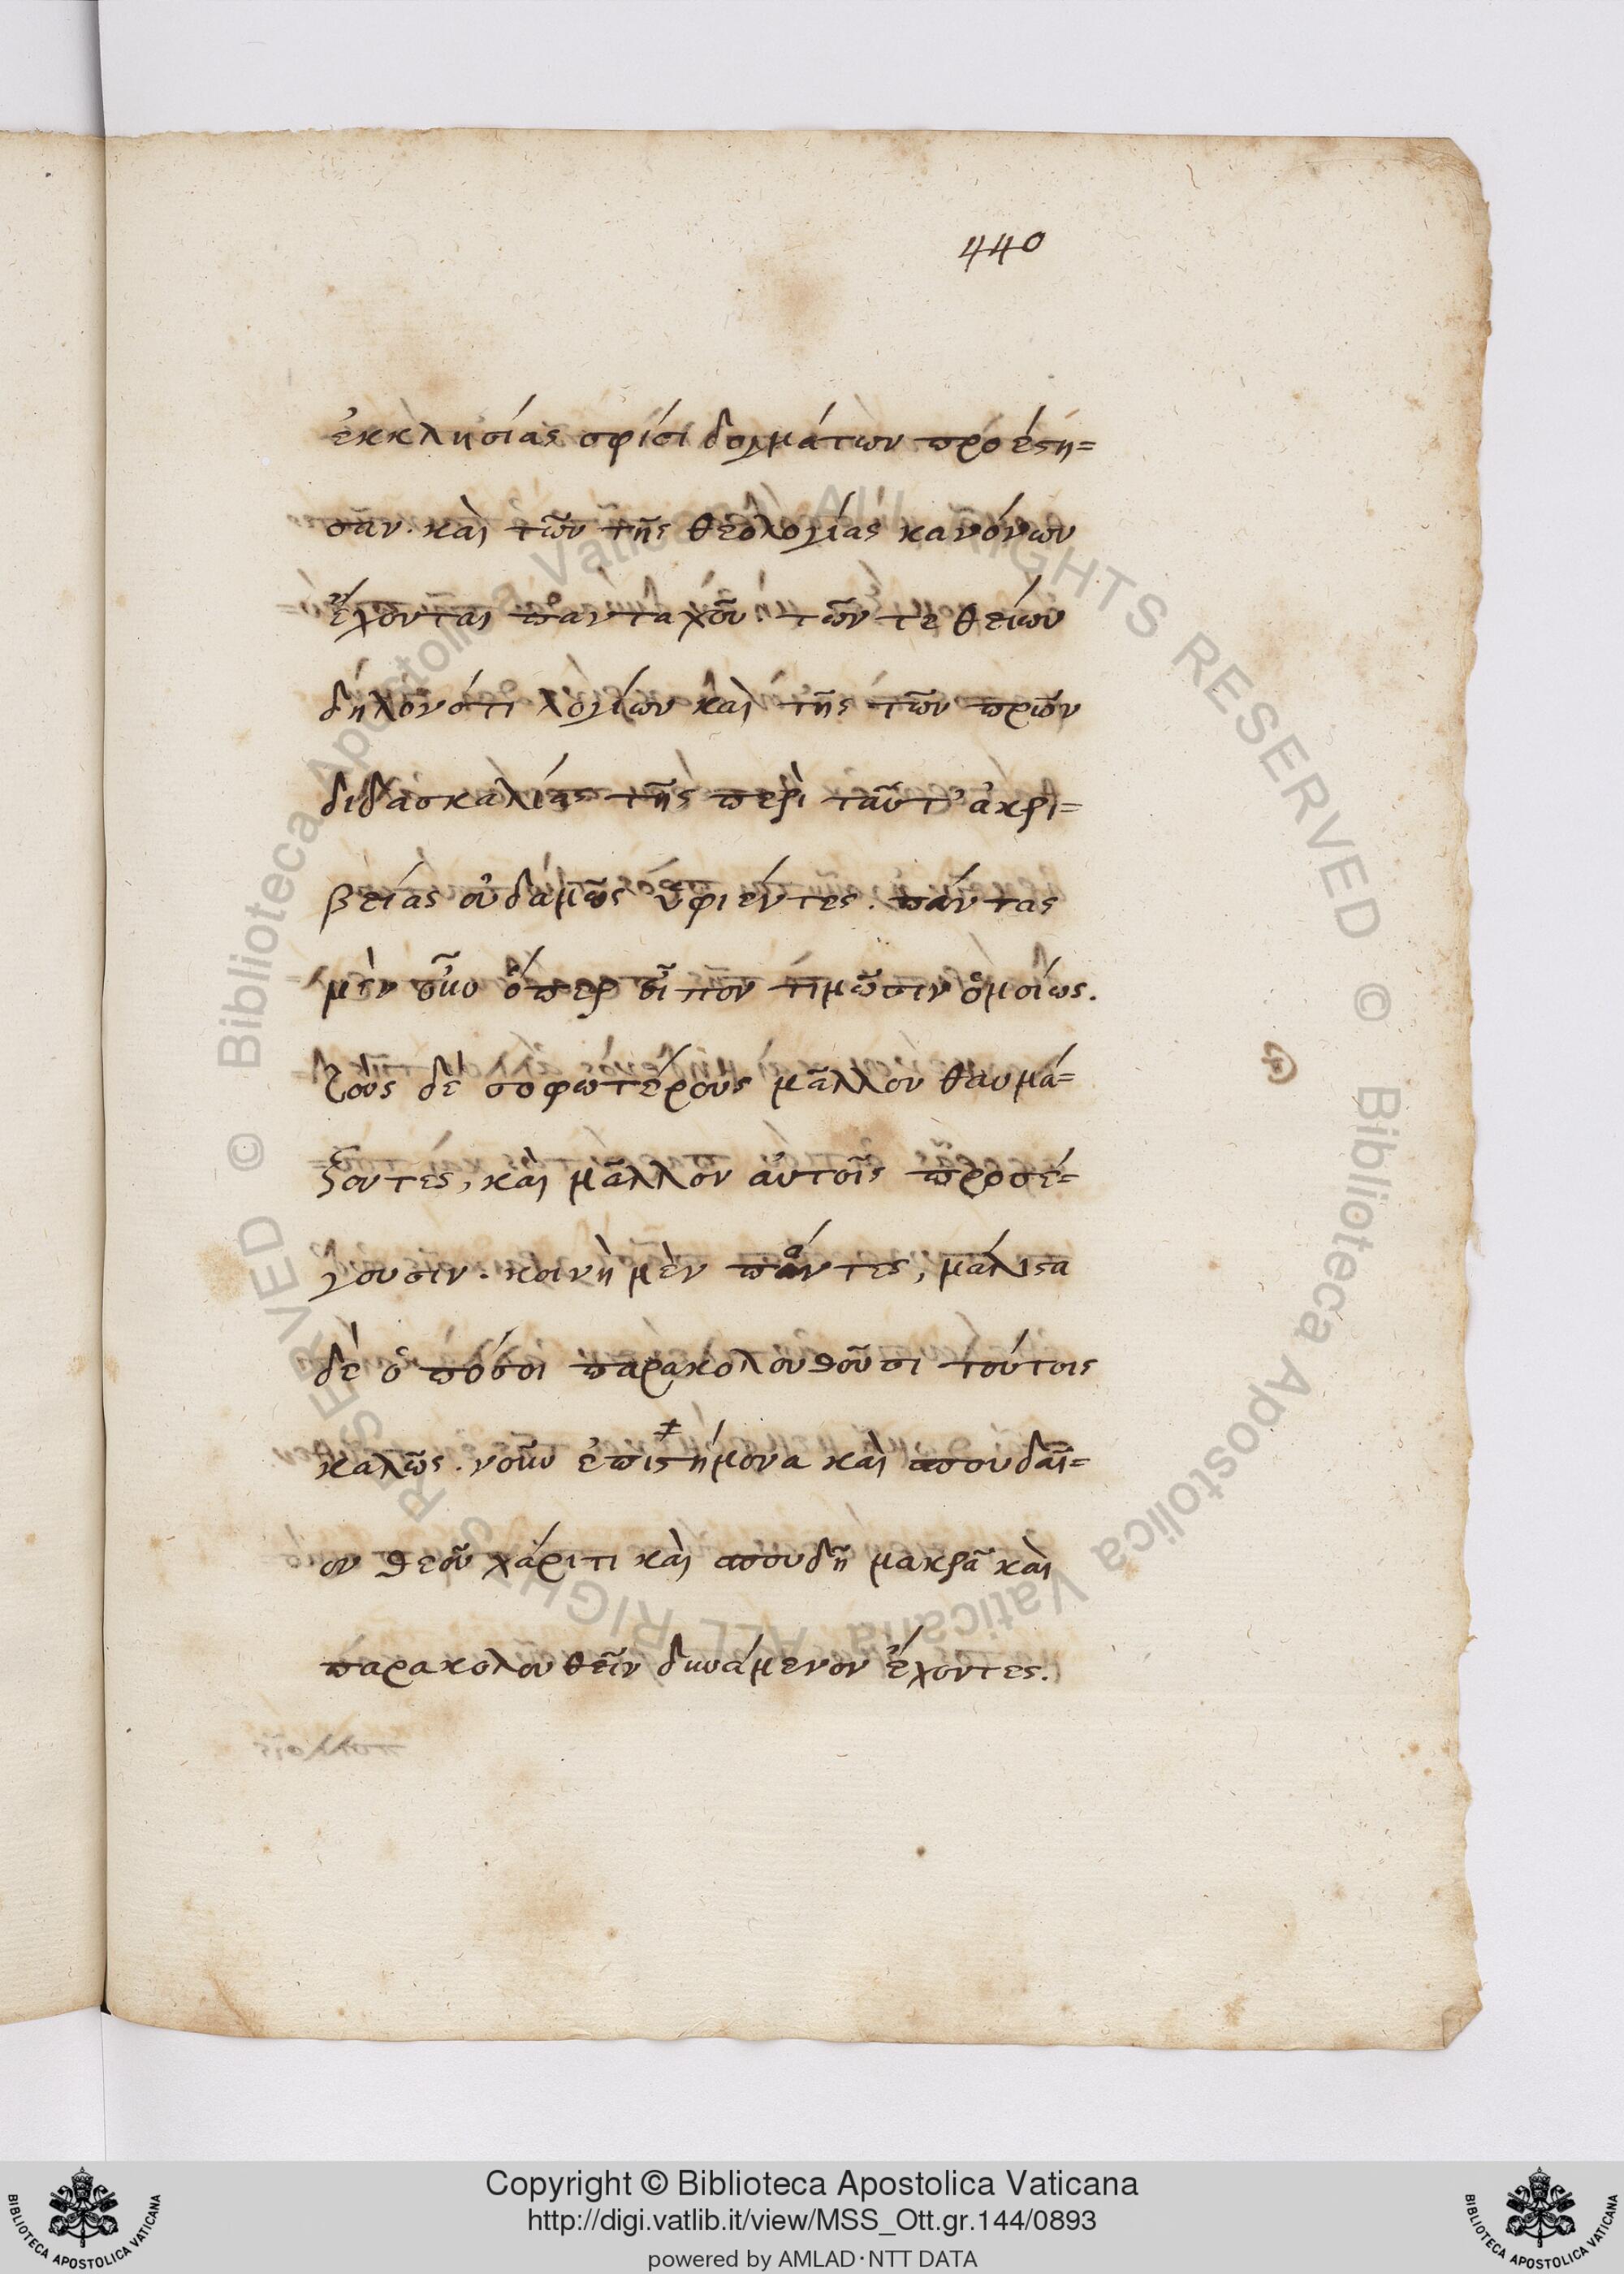 440
ἐκκλησίας σφίσι δογμάτων προέστη=
σαν. καὶ τῶν τῆς θεολογίας κανόνων
ἔχονται πανταχοῦ. τῶν τε θείων
δηλονότι λογίων καὶ τῆς τῶν πρων
διδασκαλίας τῆς περὶ ταῦτ' ἀκρι=
βείας οὐδαμῶς ὑφιέντες. πάντας
μὲν οὖν ὅπερ εἶπον τιμῶσιν ὁμοίως.
τοὺς δὲ σοφωτέρους μᾶλλον θαυμά=
ζοντες, καὶ μᾶλλον αὐτοῖς προσέ=
χουσιν. κοινῇ μὲν πάντες, μάλιστα
δὲ ὁπόσοι παρακολουθοῦσι τούτοις
καλῶς. νοῦν ἐπιστήμονα καὶ σπουδαῖ=
ον θεοῦ χάριτι καὶ σπουδῇ μακρᾷ καὶ
παρακολουθεῖν δυνάμενον ἔχοντες.
© Biblioteca Apostolica Vaticana ALL RIGHTS RESERVED © Biblioteca Apostolica Vaticana ALL RIGHTS RESERVED
Copyright © Biblioteca Apostolica Vaticana
http://digi.vatlib.it/view/MSS_Ott.gr.144/0893
powered by AMLAD·NTT DATA
BIBLIOTECA APOSTOLICA VATICANA
BIBLIOTECA APOSTOLICA VATICANA